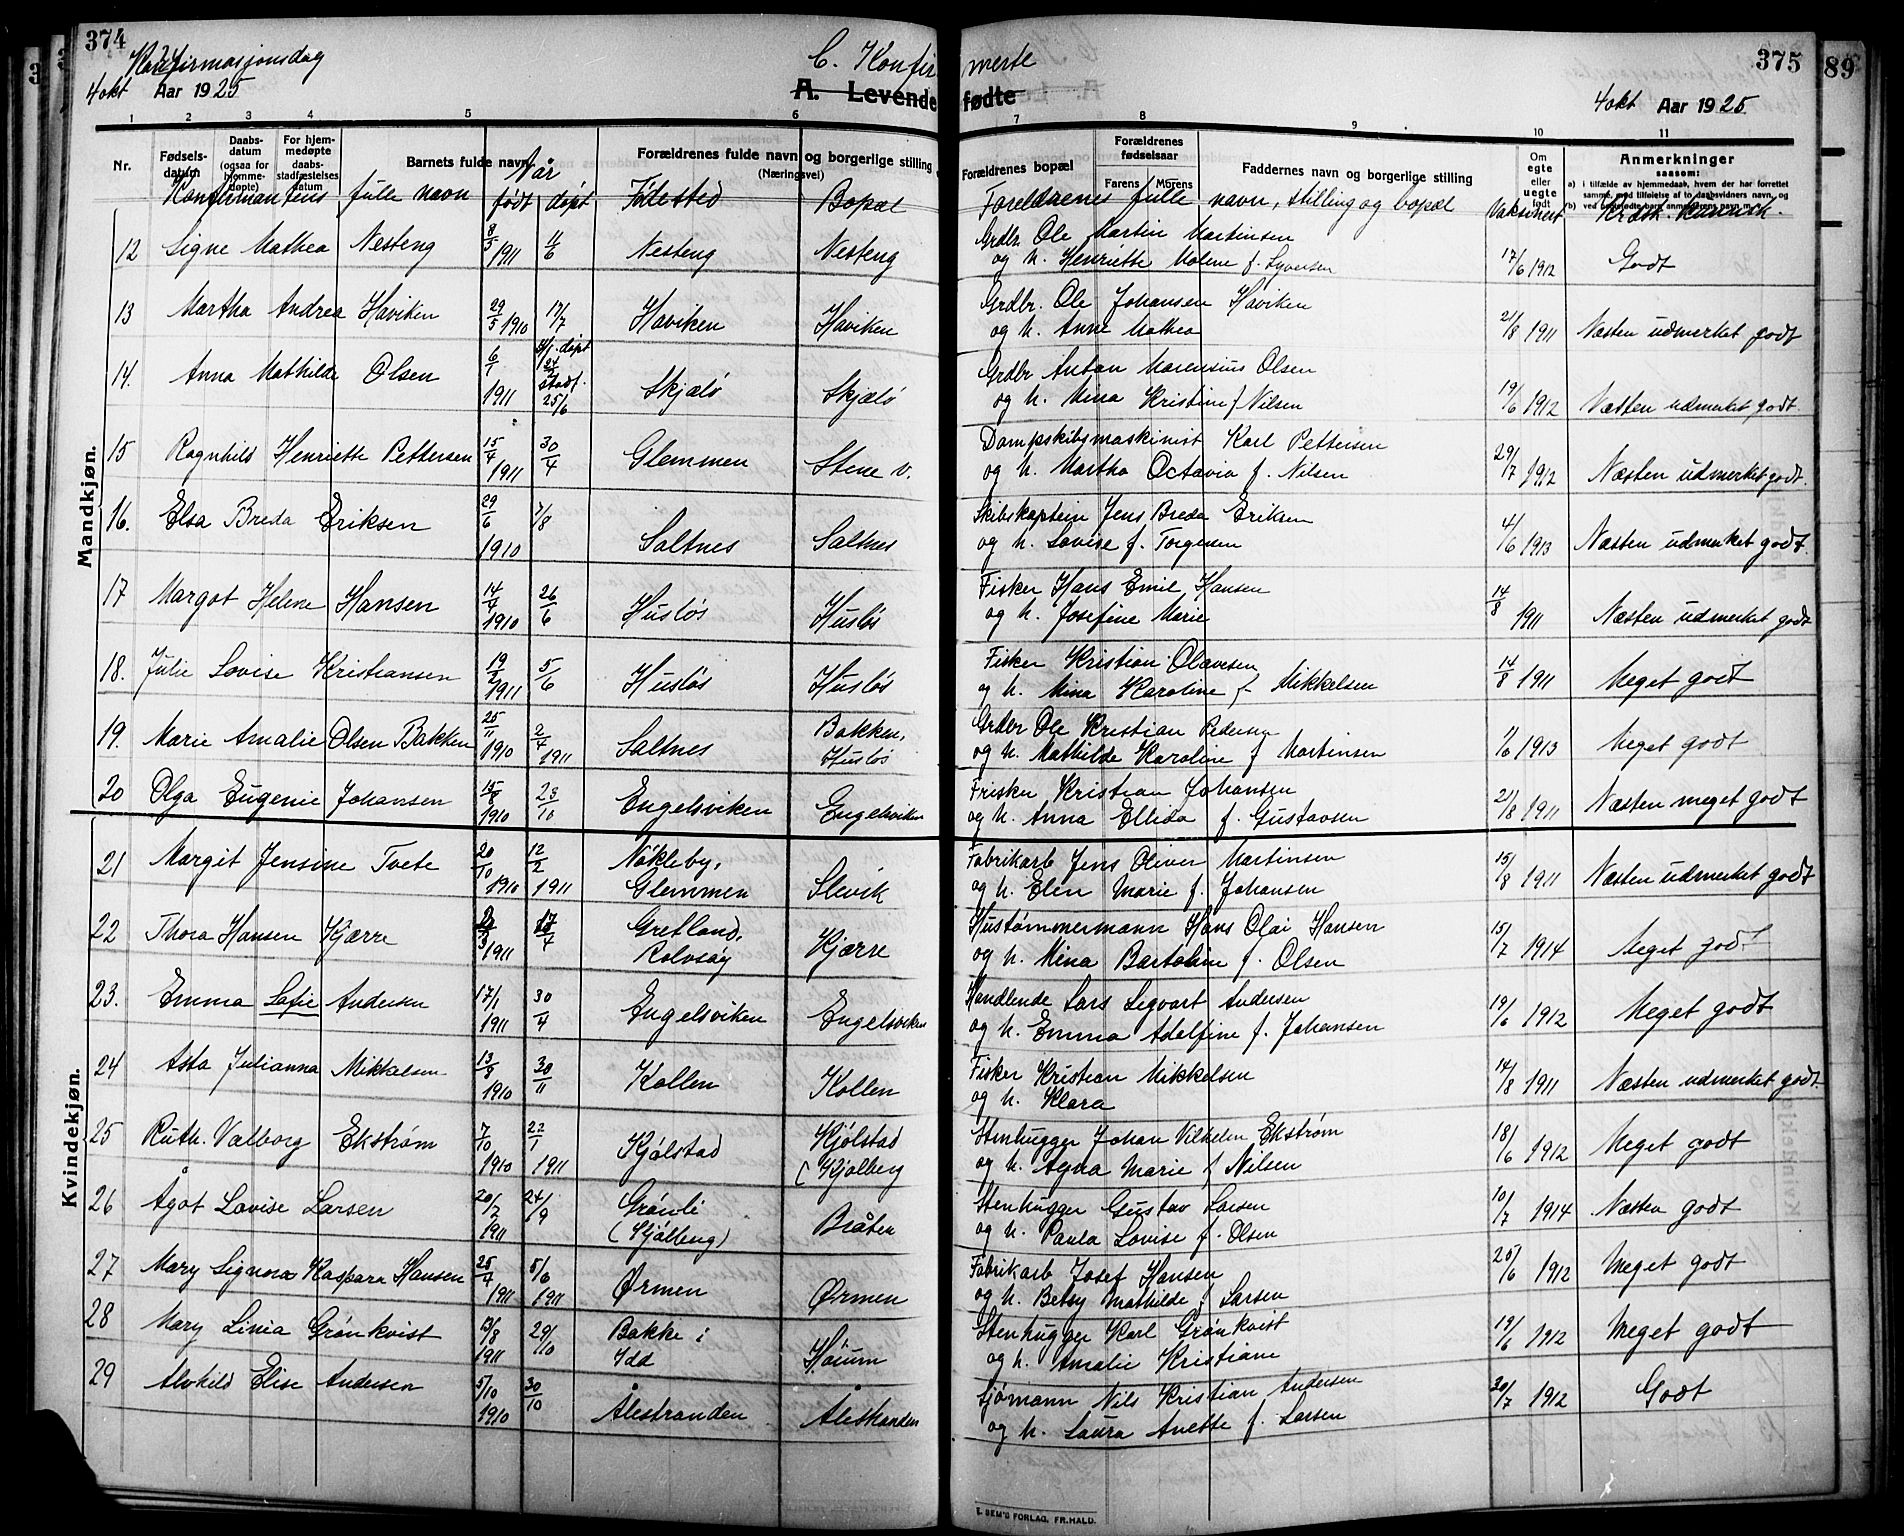 374
Konfirmasjonsdag
4 okt Aar 1925
C. Konfirmerte
A. Levendefødte
375
4 okt Aar 1925
89
1 2 3 4 5 6 7 8 9 10 11
Nr. Fødselsdatum Daabsdatum (ogsaa for hjemmedøpte) For hjemmedøpte daabsstadfæstelses datum Barnets fulde navn Forældrenes fulde navn og borgerlige stilling (Næringsvei)
Forældrenes bopæl Forældrenes fødselsaar Farens Morens Faddernes navn og borgerlige stilling Om egte eller uegte født Anmerkninger saasom:
a) i tilfælde av hjemmedaab, hvem der har forrettet samme, med tilføielse af to daabsvidners navn, og
b) ved uegtefødte barn anmerkes m.
Konfirmantens fulle navn Når født døpt Fødested Bopæl Foreldrenes fulle navn, stilling og bopæl Vaksinert
Mandkjøn.
12 Signe Mathea Nesteng 8/5 1911 11/6 Nesteng Nesteng Grdbr. Ole Martin Martinsen
og h. Henriette Malene f. Syversen 17/6 1912 Godt
13 Martha Andrea Haviken 29/5 1910 17/7 Haviken Haviken Grdbr. Ole Johansen Haviken
og h. Anne Mathea 21/8 1911 Næsten udmerket godt
14. Anna Mathilde Olsen 6/1 1911 døpt stadf. 25/6 Skjælø Skjælø Grdbr Anton Marensius Olsen
og h. Mina Kristine f Nilsen 19/6 1912 Næsten udmerket godt
15 Ragnhild Henriette Pettersen 15/4 1911 30/4 Glemmen Stene v. Dampskibsmaskinist Karl Pettersen
og h. Martha Octavia f. Nilsen 29/7 1912 Næsten udmerket godt.
16. Elsa Breda Eriksen 29/6 1910 7/8 Saltnes Saltnes Skibskaptein Jens Breda Eriksen
og h. Lovise f. Torgersen 4/6 1913 Næsten udmerket godt.
17 Margot Helene Hansen 14/4 1910 26/6 Husløs Husløs Fisker Hans Emil Hansen
og h. Josefine Marie 14/8 1911 Næsten udmerket godt
18. Julie Lovise Kristiansen 19/2 1911 5/6 Husløs Husløs Fisker Kristian Olavesen
og h. Mina Karoline f Mikkelsen 14/8 1911 Meget godt
19. Marie Amalie Olsen Bakken 25/11 1910 2/4 1911 Saltnes Bakken, Husløs Grdbr Ole Kristian Pedersen
og h. Mathilde Karoline f Martinsen 1913 Meget godt
20 Olga Eugenie Johansen 1910 23/10 Engelsviken Engelsviken Frisker Kristian Johansen
og h. Anna Ellida f. Gustavsen 21/8 1911 Næsten meget godt
Kvindekjøn.
21 Margit Jensine Tvete 20/10 1910 12/2 1911 Nøkleby, Glemmen Slevik Fabrikarb Jens Oliver Martinsen
og h. Elen Marie f. Johansen 15/8 1911 Næsten udmerket godt
22 Thora Hansen Kjærre 1911 17/4 Gretland, Rolvsøy Kjærre Hustømmermann Hans Olai Hansen
og h. Mina Bartoline f. Olsen 15/7 1914 Meget godt
23. Emma Sofie Andersen 17/1 1911 30/4 Engelsviken Engelsviken Handlende Lars Segvart Andersen
og h. Emma Adolfine f. Johansen 19/6 1912 Meget godt
24 Asta Julianna Mikkelsen 13/8 1910 30/11 Kollen Kollen Fisker Kristian Mikkelsen
og h. Klara 14/8 1911 Næsten udmerket godt.
25 Ruth. Valborg Ekstrøm 7/10 1910 22/1 1911 Kjølstad Kjølstad (Kjølberg Stenhugger Johan Vilhelm Ekstrøm
og h. Agna Marie f Nilsen 18/6 1912 Meget godt
26 Ågot Lovise Larsen 20/2 1911 24/9 Grønli (Kjølberg) Bråten Stenhugger Gustav Larsen
og h. Paula Lovise f. Olsen 10/7 1914 Næsten godt
27 Mary Signora Kaspara Hansen 25/4 1911 5/6 1911 Ørmen Ørmen Fabrikarb Josef Hansen
og h. Betsy Mathilde f Larsen 25/6 1912 Meget godt
28 Mary Linia Grønkvist 13/8 1911 29/10 Bakke i Idd Høium Stenhugger Karl Grønkvist
og h. Amalie Kristiane 19/6 1912 Meget godt
29 Alvhild Elise Andersen 5/10 1910 30/10 Ålestranden Ålestranden Sjømann Nils Kristian Andersen
og h. Laura Anette f. Larsen 20/7 1912 Godt
E. SEM'S FORLAG, FR.HALD.